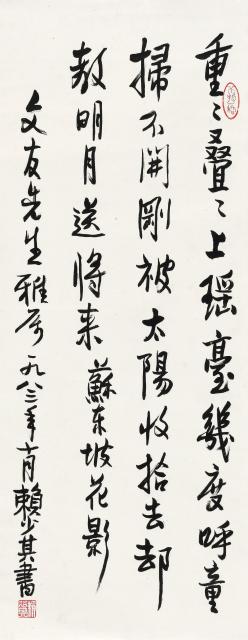 重〻叠〻上瑶臺幾度呼童
掃不開剛被太陽收拾去却
教明月送將来 蘇东坡花影
文友先生雅属 一九八三年十月賴少其書